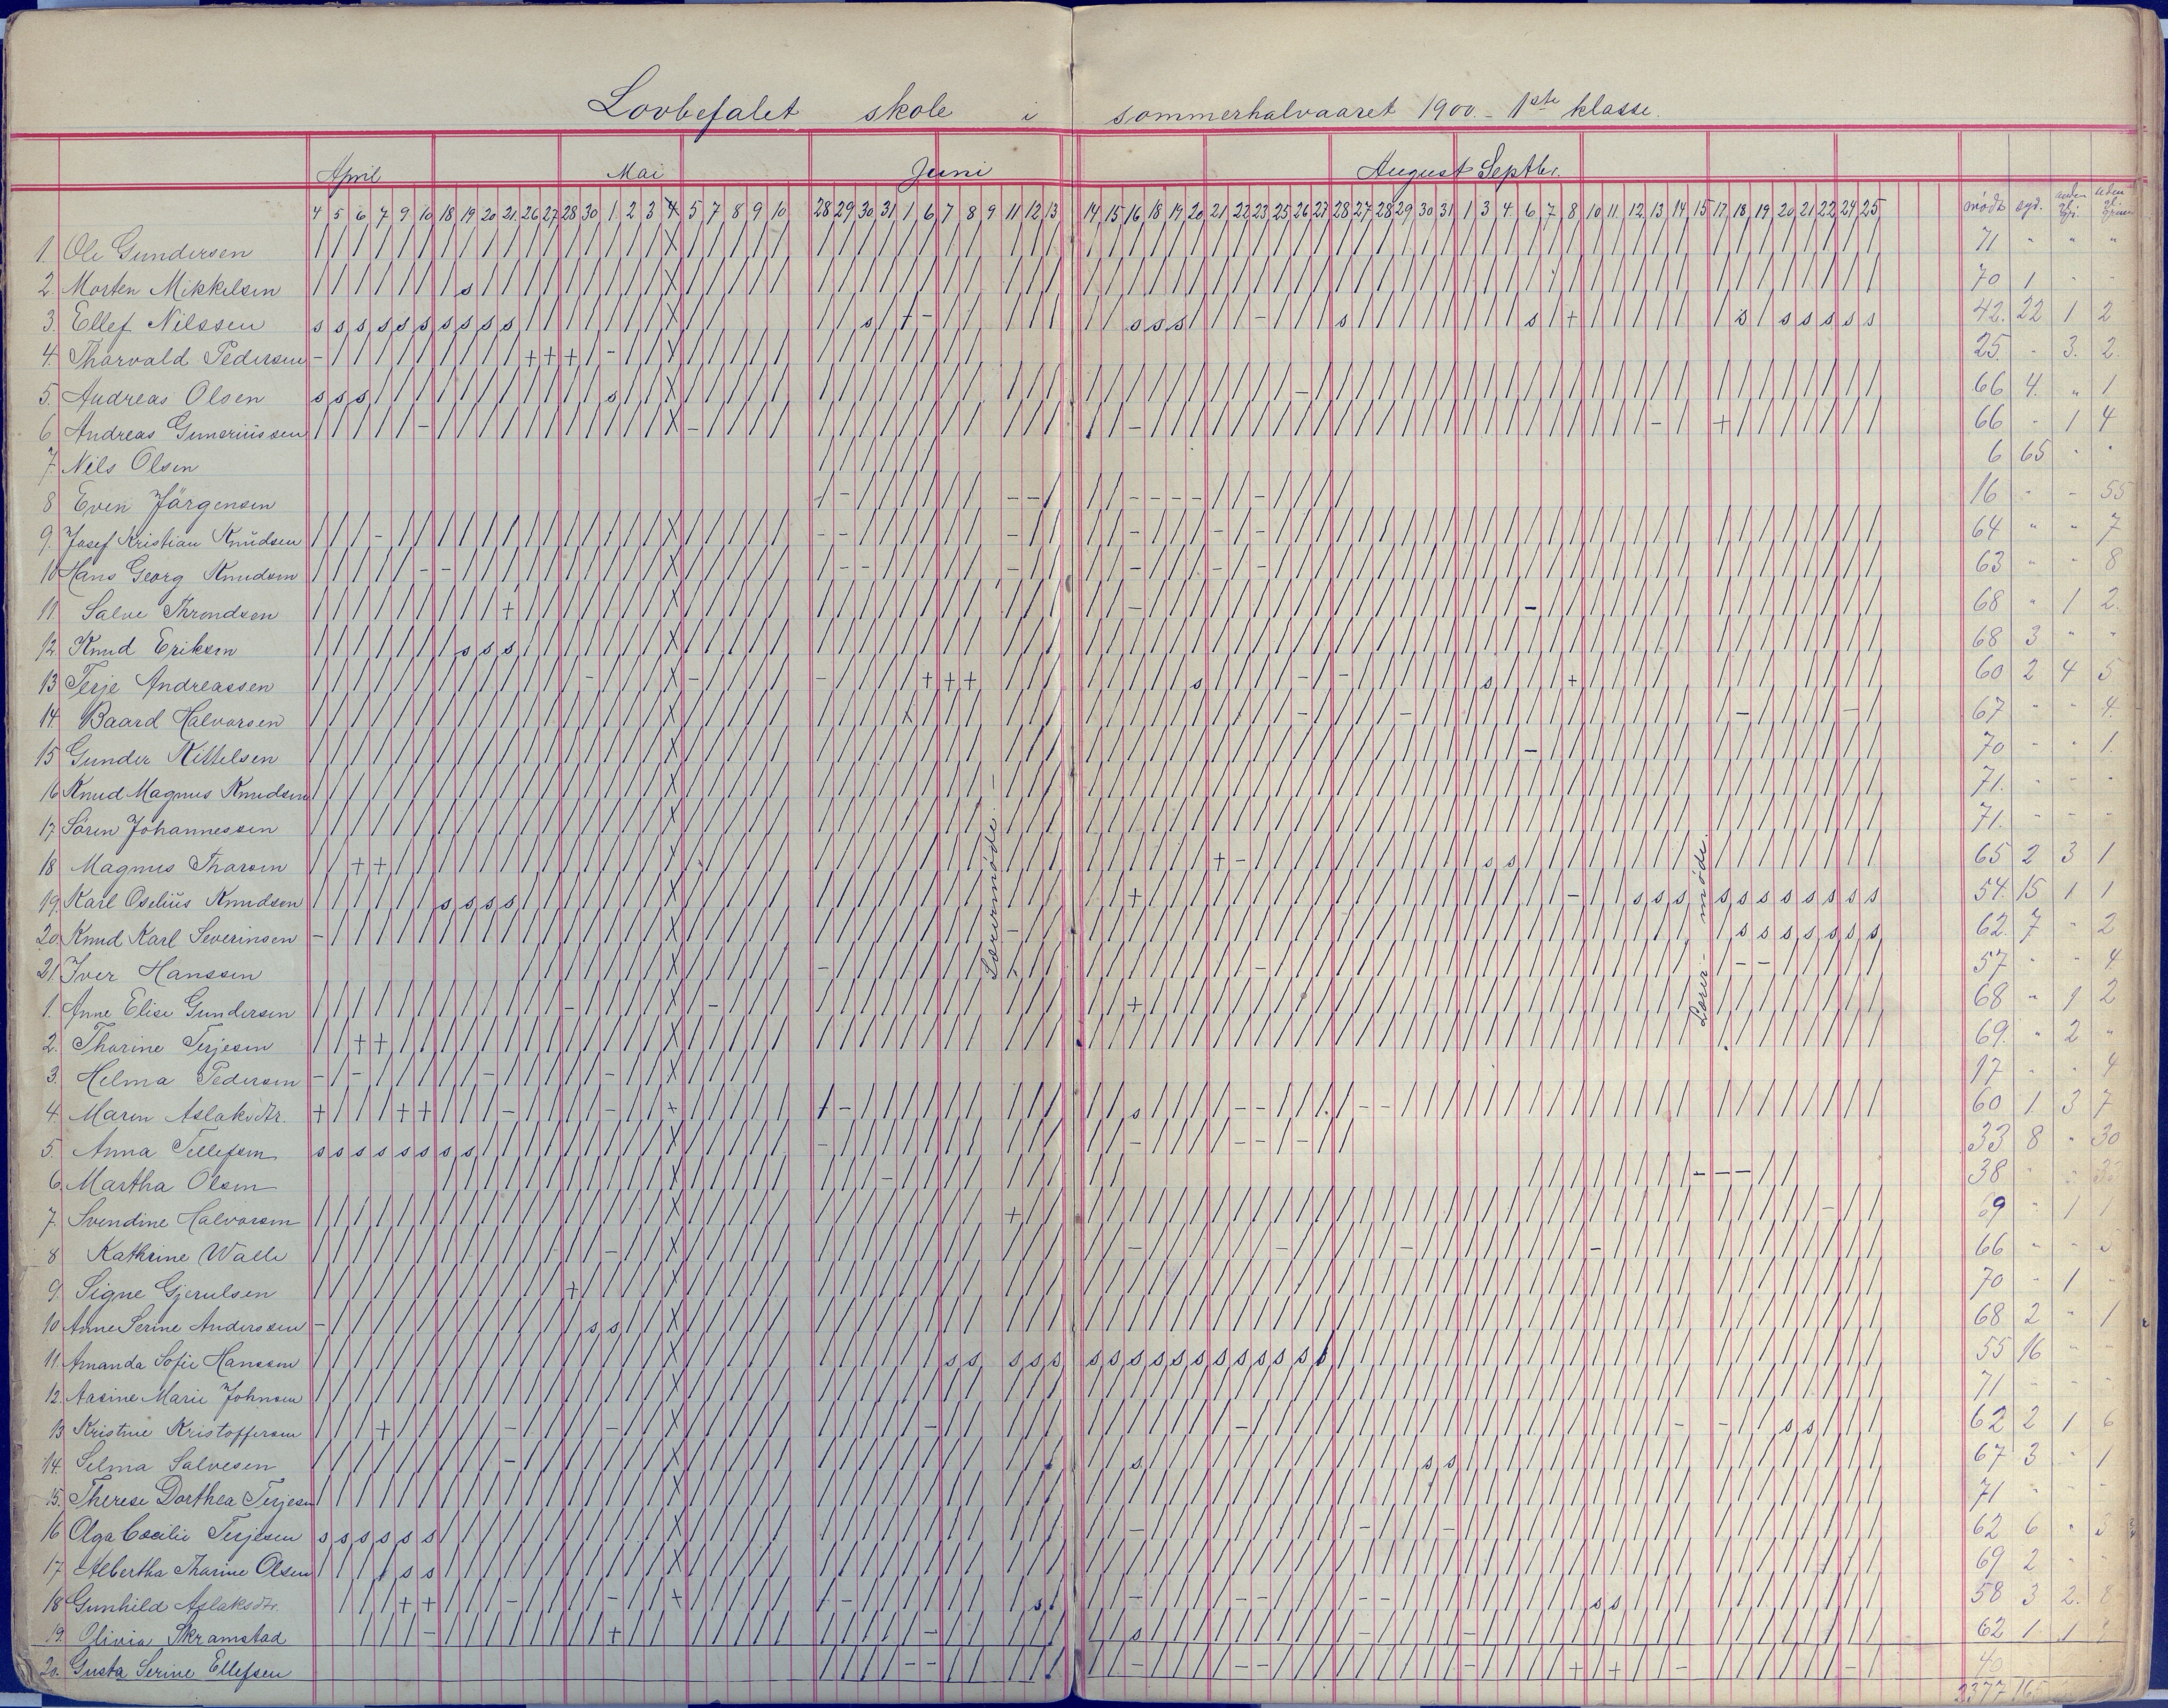 Lovbefalet skole i sommerhalvaaret 1900. - 1ste klasse.
April Mai Juni August Septbr.
4 5 6 7 9 10 18 19 20 21 26 27 28 30 1 2 3 4 5 7 8 9 10 28 29 30 31 1 6 7 8 9 11 12 13 14 15 16 18 19 20 21 22 23 25 26 27 28 27 28 29 30 31 1 3 4 6 7 8 10 11 12 13 14 15 17 18 19 20 21 22 24 25 mødt syd.
1. Ole Gundersen 71 " " "
2. Morten Mikkelsen 70 1 - -
3. Ellef Nilssen 42. 22 1 2
4. Thorvald Pedersen 25. - 3. 2.
5. Andreas Olsen 66 4. " 1
6 Andreas Guneriussen 66 - 1 4
7. Nils Olsen 6 65 " "
8 Even Jørgensen 16 - - 55
9. Josef Kristian Knudsen 64 " " 7
10 Hans Georg Knudsen 63 " " 8
11. Salve Throndsen 68 " 1 2.
12. Knud Eriksen 68 3 " "
13 Terje Andreassen 60 2 4 5
14. Baard Halvorsen 67 " " 4.
15 Gunder Kittelsen 70 " " 1.
16 Knud Magnus Knudsen 71. - - -
17. Søren Johannessen 71. - - -
18 Magnus Tharsen 65 2 3 1
19. Karl Oselius Knudsen 54. 15 1 1
20. Knud Karl Severinsen 62. 7 " 2
21. Iver Hanssen 57 " " 4.
Lærermøde. -
Lærer-møde.
1. Anne Elise Gundersen 68 " 1 2
2. Tharine Terjesen 69. " 2 "
3. Helma Pedersen 17 " " 4
4. Maren Aslaksdtr. 60 1 3 7
5. Anna Tellefsen 33 8 " 30
6. Martha Olsen 38 " "
7. Svendine Halvorsen 69 " 1 1
8 Kathrine Walle 66 - - 5
9. Signe Gjerulsen 70 - 1 -
10 Anne Serine Anderssen 68 2 " 1
11. Amanda Sofie Hanssen 55 16 - -
12. Aasine Marie Johnsen 71 - - -
13 Kristine Kristoffersen 62 2 1 6
14. Selma Salvesen 67 3 - 1
15. Therese Dorthea Terjesen 71 - - -
16 Olga Cecilie Terjesen 62 6 " 3
17. Albertha Tharine Olsen 69 2 - -
18 Gunhild Aslaksdtr. 58 3 2. 8
19. Olivia Skramstad 62 1 1
20. Gusta Serine Ellefsen 40
2377